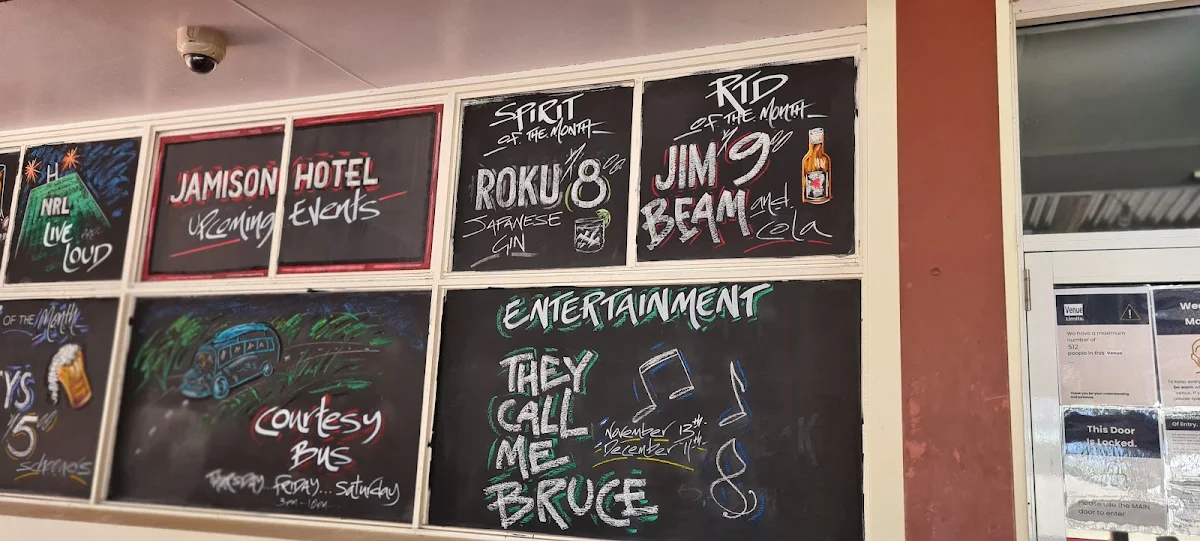 NRL
LIVE and
LOUD
JAMISON HOTEL
Upcoming Events
SPIRIT
OF THE MONTH
ROKU 8
JAPANESE
GIN
RTD
OF THE MONTH
JIM 9
BEAM and
Cola
OF THE Month
5
schooners
Courtesy
Bus
Thursday FRIDAY... Saturday
ENTERTAINMENT
THEY
CALL
ME
BRUCE
November 12th
December 11th
Venue
Limits.
We have a maximum
number of
512
people in this Venue
Thank you for your understanding
and patience
This Door
is Locked.
Please use the MAIN
door to enter
of Entry.